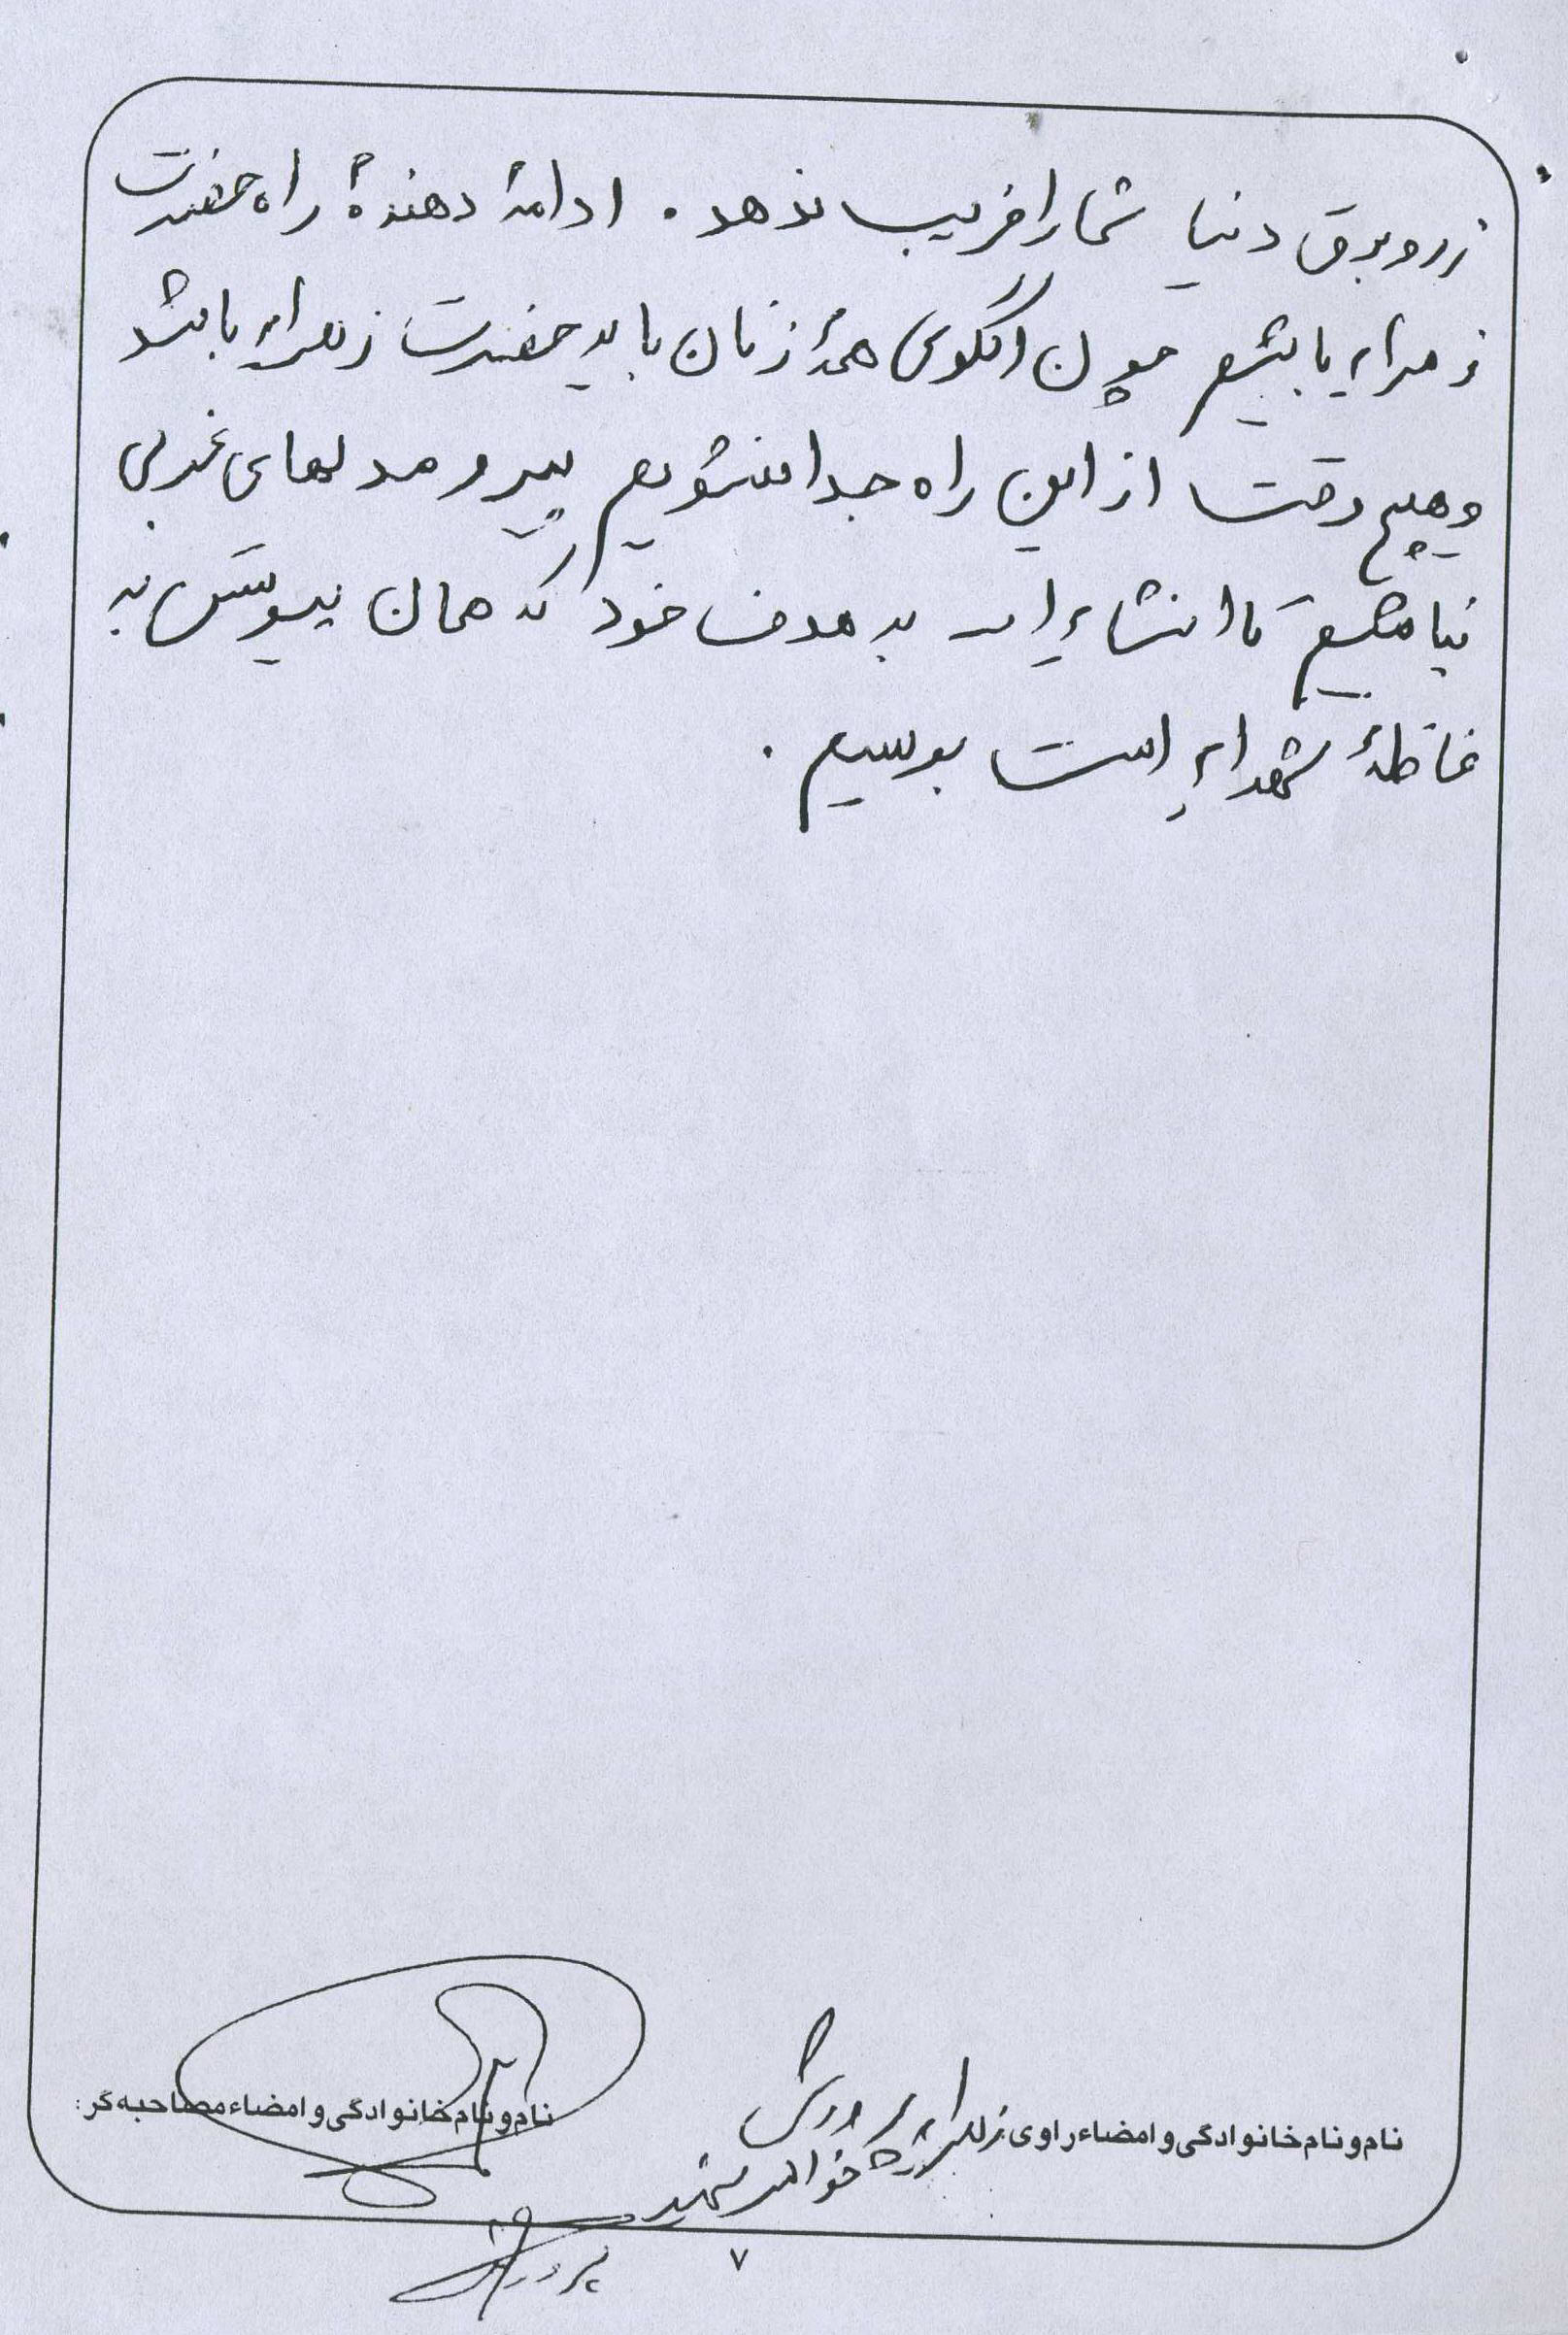 زرو برق دنیا شما را فریب ندهد . ادامهٔ دهندهٔ راه حضرت
زهراء باشیم چون الگوی همهٔ زنان باید حضرت زهراء باشد
و هیچ وقت از این راه جدا نشویم پیرو مدلهای غربی
نباشیم تا انشاءا... به هدف خود که همان پیوستن به
غافلهٔ شهداء است برسیم .
نام و نام خانوادگی و امضاء راوی: زهرا پرورش
نام و نام خانوادگی و امضاء مصاحبه گر:
خواهر شهید
پرورش
۷